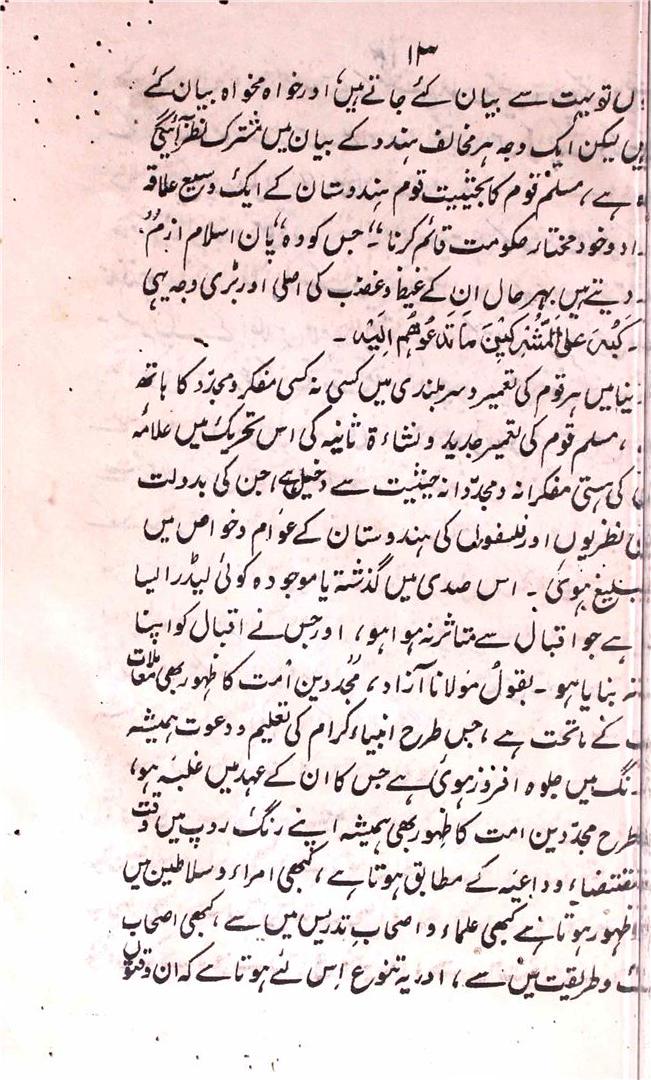 ۱۳
توبہت سے بیان کئے جاتے ہیں، اور خواہ مخواہ بیان کے
لیکن ایک وجہ ہر مخالف ہندو کے بیان میں مشترک نظر آئیگی
ہے، مسلم قوم کا بحیثیت قوم ہندوستان کے ایک وسیع علاقہ
وخود مختار حکومت قائم کرنا "۔ جس کو وہ "پان اسلام ازم"
دیتے ہیں بہر حال ان کے غیظ و غضب کی اصلی اور بڑی وجہ یہی
۔ كَبُرَ عَلَى الْمُشْرِكِينَ مَا تَدْعُوهُمْ إِلَيْهِ ۔
میں ہر قوم کی تعمیر و سربلندی میں کسی نہ کسی مفکر و مجدّد کا ہاتھ
، مسلم قوم کی تعمیر جدید و نشاۃ ثانیہ کی اس تحریک میں علامہ
کی ہستی مفکرانہ و مجدّدانہ حیثیت سے دخیل ہے، جن کی بدولت
نظریوں اور فلسفوں کی ہندوستان کے عوام و خواص میں
ہوئی ۔ اس صدی میں گذشتہ یا موجودہ کوئی لیڈر ایسا
ہے جو اقبال سے متاثر نہ ہوا ہو، اور جس نے اقبال کو اپنا
نہ بنایا ہو ۔ بقول مولانا آزاد، "مجددین اُمت کا ظہور بھی معاملات
کے ماتحت ہے، جس طرح انبیاء کرام کی تعلیم و دعوت ہمیشہ
رنگ میں جلوہ افروز ہوئی ہے جس کا ان کے عہد میں غلبہ ہو،
طرح مجدّدین امت کا ظہور بھی ہمیشہ اپنے رنگ روپ میں وقت
مقتضاء و داعیہ کے مطابق ہوتا ہے، کبھی امراء و سلاطین میں
ظہور ہوتا ہے کبھی علماء و اصحابِ تدریس میں سے، کبھی اصحاب
و طریقت میں سے، اور یہ تنوع اِس لئے ہوتا ہے کہ ان وقتوں